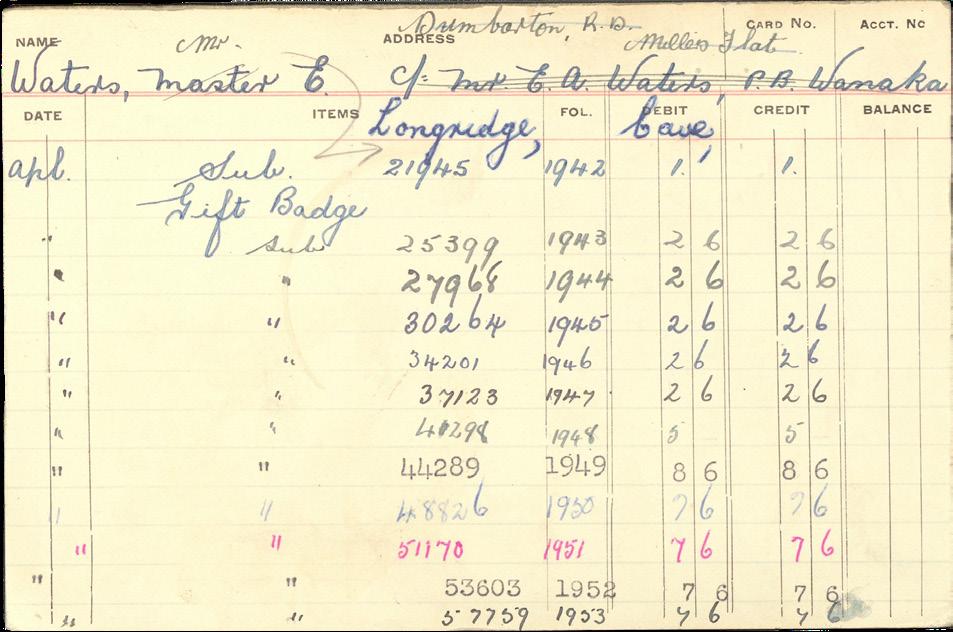 Dumbarton, R.D.
Millers Flat
NAME Mr. ADDRESS CARD No. ACCT. No
Waters, Master E. C/= Mr. E. A. Waters, P.B. Wanaka
DATE ITEMS Longridge, FOL. DEBIT Cave, CREDIT BALANCE
Apl. Sub. 21945 1942 1. 1.
Gift Badge
" Sub 25399 1943 2 6 2 6
" " 27968 1944 2 6 2 6
" " 30264 1945 2 6 2 6
" " 34201 1946 2 6 2 6
" " 37123 1947 2 6 2 6
" " 41298 1948 5 5
" " 44289 1949 8 6 8 6
" " 48826 1950 7 6 7 6
" " 51170 1951 7 6 7 6
" " 53603 1952 7 6 7 6
" " 57759 1953 7 6 7 6